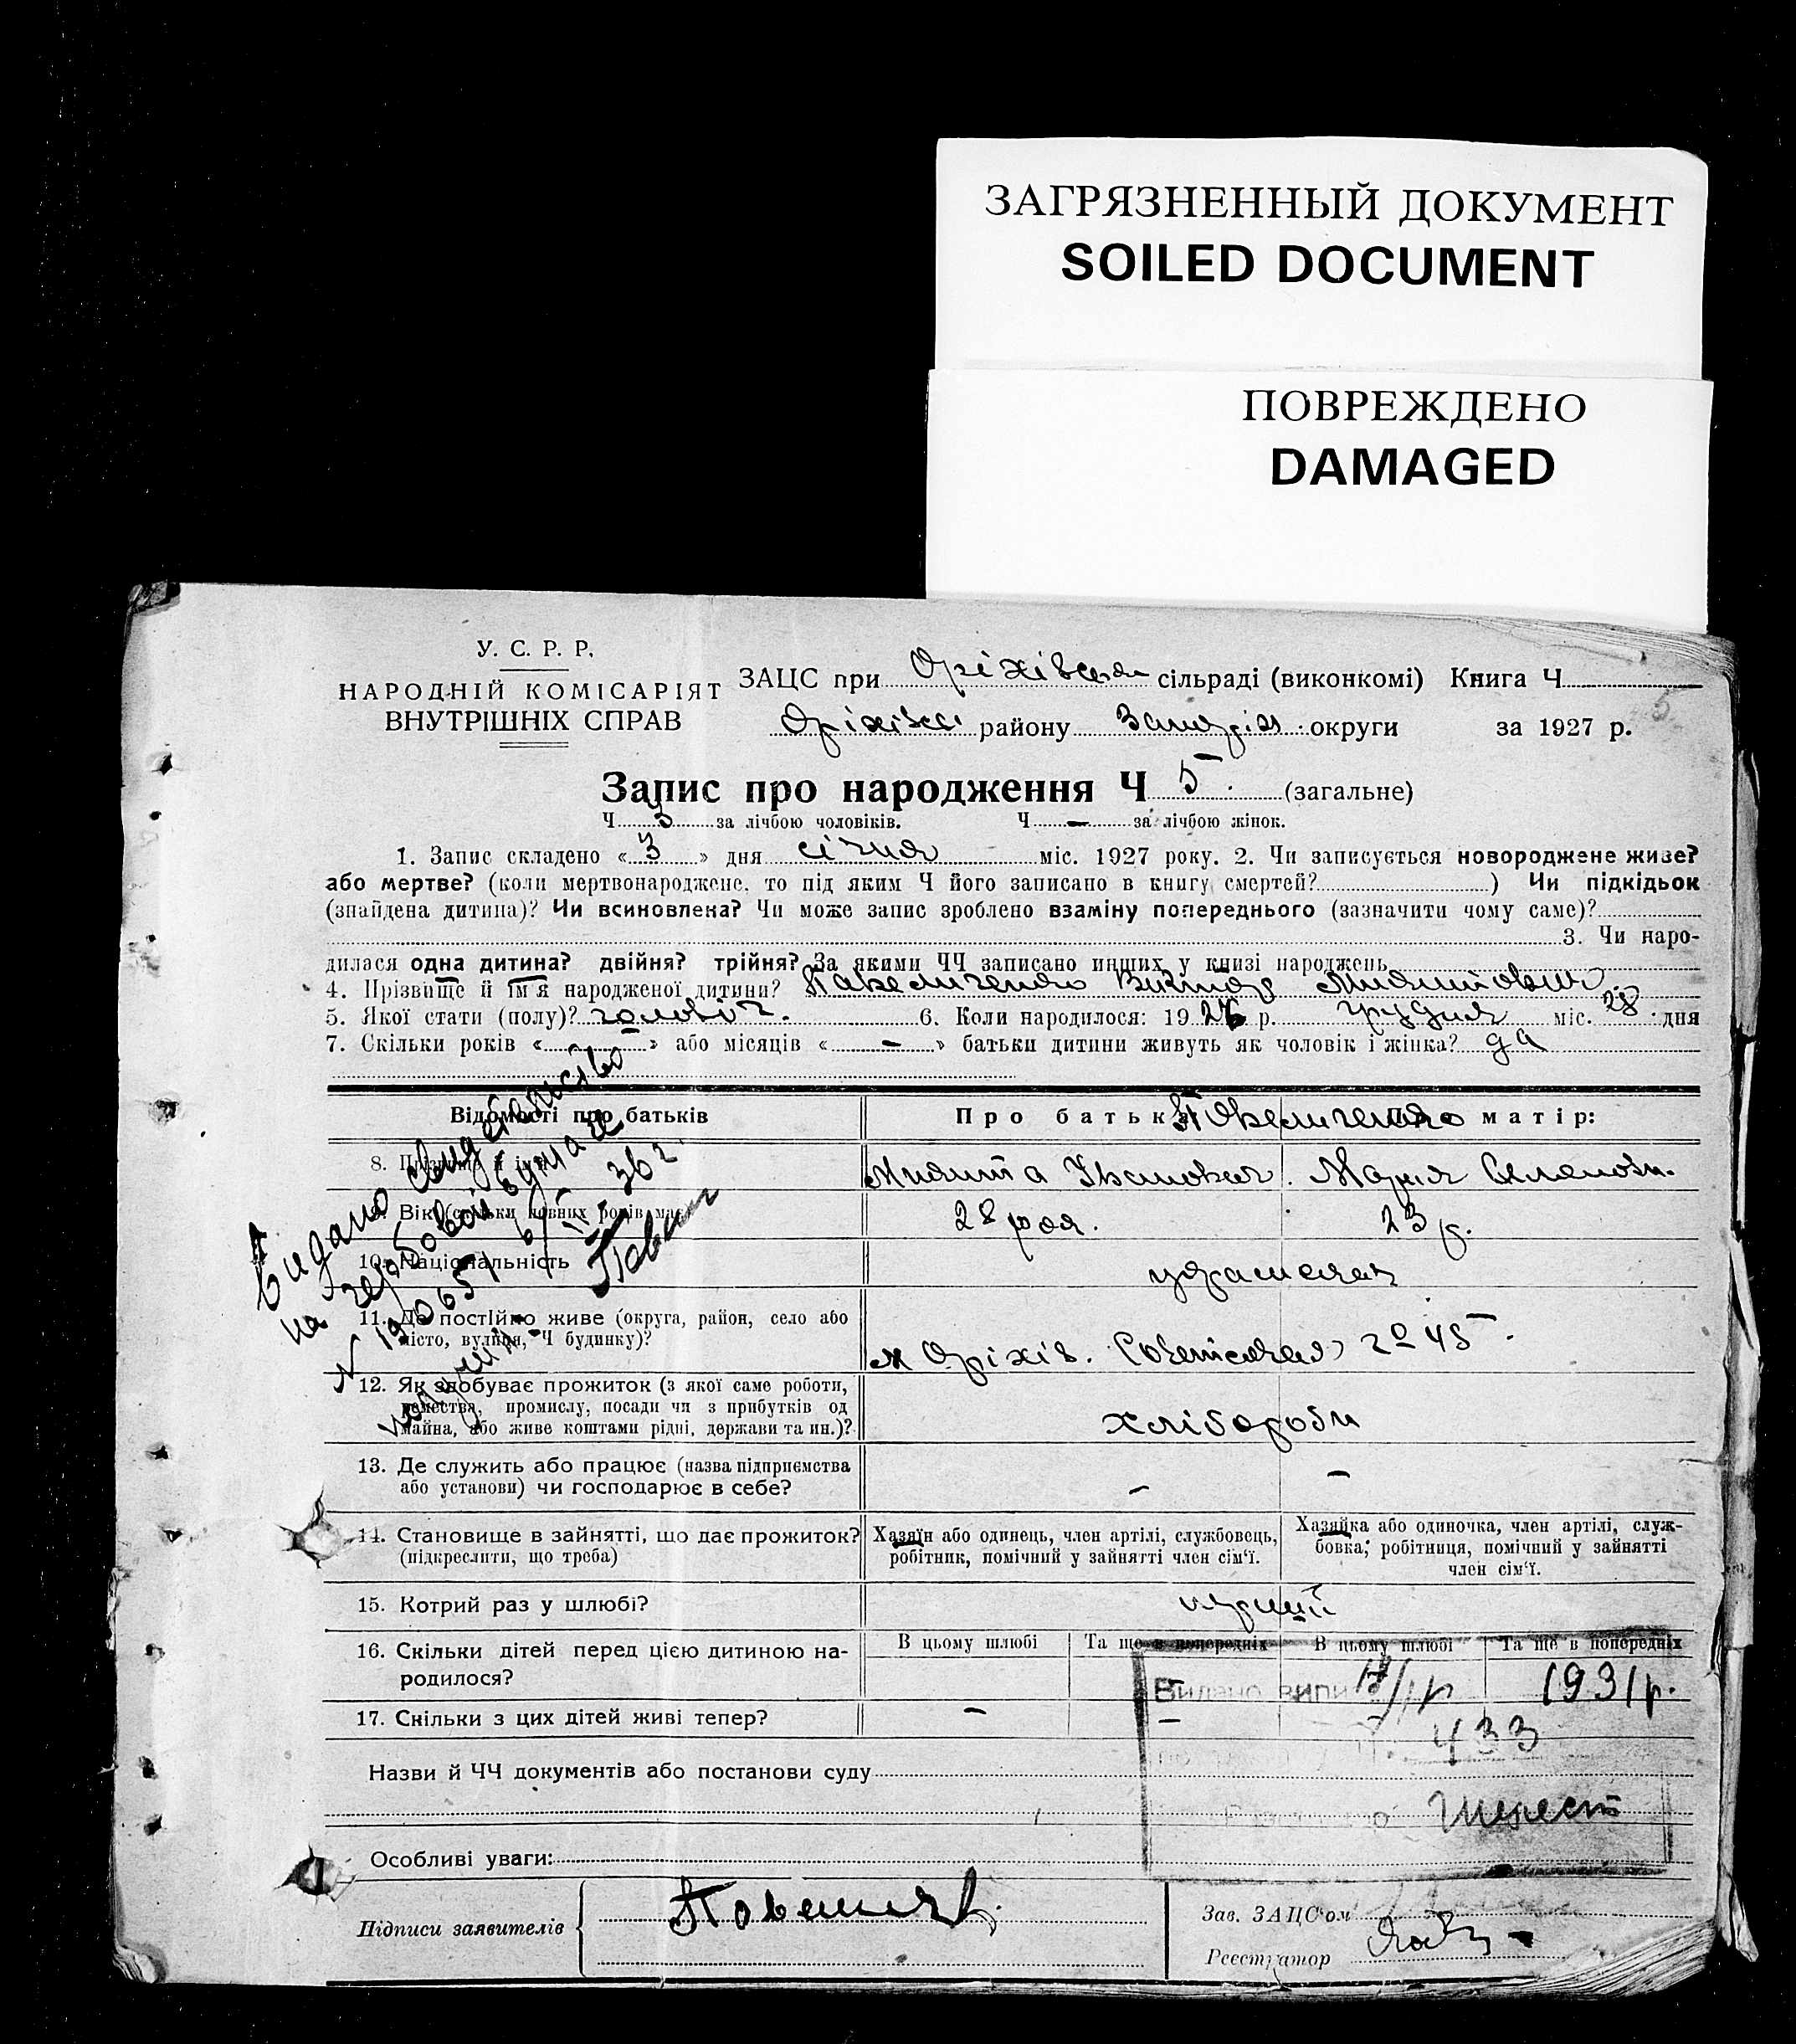 ЗАГРЯЗНЕННЫЙ ДОКУМЕНТ
SOILED DOCUMENT
ПОВРЕЖДЕНО
DAMAGED
У. С. Р. Р.
НАРОДНІЙ КОМІСАРІЯТ
ВНУТРІШНІХ СПРАВ
ЗАЦС при Оріхівськ сільраді (виконкомі) Книга Ч
Оріхівськ району Запоріж округи за 1927 р.
Запис про народження Ч 5 (загальне)
Ч 3 за лічбою чоловіків. Ч — за лічбою жінок.
1. Запис складено «3» дня січня міс. 1927 року. 2. Чи записується новороджене живе?
або мертве? (коли мертвонароджене, то під яким Ч його записано в книгу смертей?) Чи підкідьок
(знайдена дитина)? Чи всиновлена? Чи може запис зроблено взаміну попереднього (зазначити чому саме)?
3. Чи наро-
дилася одна дитина? двійня? трійня? За якими ЧЧ записано инших у книзі народжень
4. Прізвище й ім'я народженої дитини? Віктор
5. Якої стати (полу)? чоловіч. 6. Коли народилося: 1926 р. грудня міс. 28 дня
7. Скільки років « » або місяців « — » батьки дитини живуть як чоловік і жінка? да
Відомості про батьків
Про батька: Про матір:
8. Прізвище й ім'я
Микита Іванович. Марія
9. Вік (скільки повних років має)
28 рок. 23 р.
10. Національність
українськ
11. Де постійно живе (округа, район, село або
місто, вулиця, Ч будинку)?
м Оріхів. Совєтская 45
12. Як здобуває прожиток (з якої саме роботи,
ремества, промислу, посади чи з прибутків од
майна, або живе коштами рідні, держави та ин.)?
хлібороби
13. Де служить або працює (назва підприємства
або установи) чи господарює в себе?
— —
14. Становище в зайнятті, що дає прожиток?
(підкреслити, що треба)
Хазяїн або одинець, член артілі, службовець,
робітник, помічний у зайнятті член сім'ї.
Хазяйка або одиночка, член артілі, служ-
бовка, робітниця, помічний у зайнятті
член сім'ї.
15. Котрий раз у шлюбі?
перший
16. Скільки дітей перед цією дитиною на-
родилося?
В цьому шлюбі Та ще в попередніх В цьому шлюбі Та ще в попередніх
17. Скільки з цих дітей живі тепер?
— —
Видано випи 1931 р.
433
Назви й ЧЧ документів або постанови суду
Особливі уваги:
Підписи заявителів
Зав. ЗАЦС'ом
Реєстратор
Видано
на гербовой бумаге
N 190651